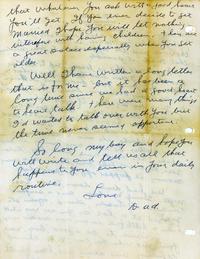 that whatever you ask with a good heart
you'll get. If you ever decide to get
married I hope you will let nothing
interfere with having children. They are
a great solace especially when you get
older.
Well I have written a long letter
this is for me - but it has been a
long time since we had a good heart
to heart talk & there were many things
I'd wanted to talk over with you but
the time never seemed opportune.
So long my boy and hope you
will write and tell us all that
happens to you even in your daily
routine.
Love
Dad.